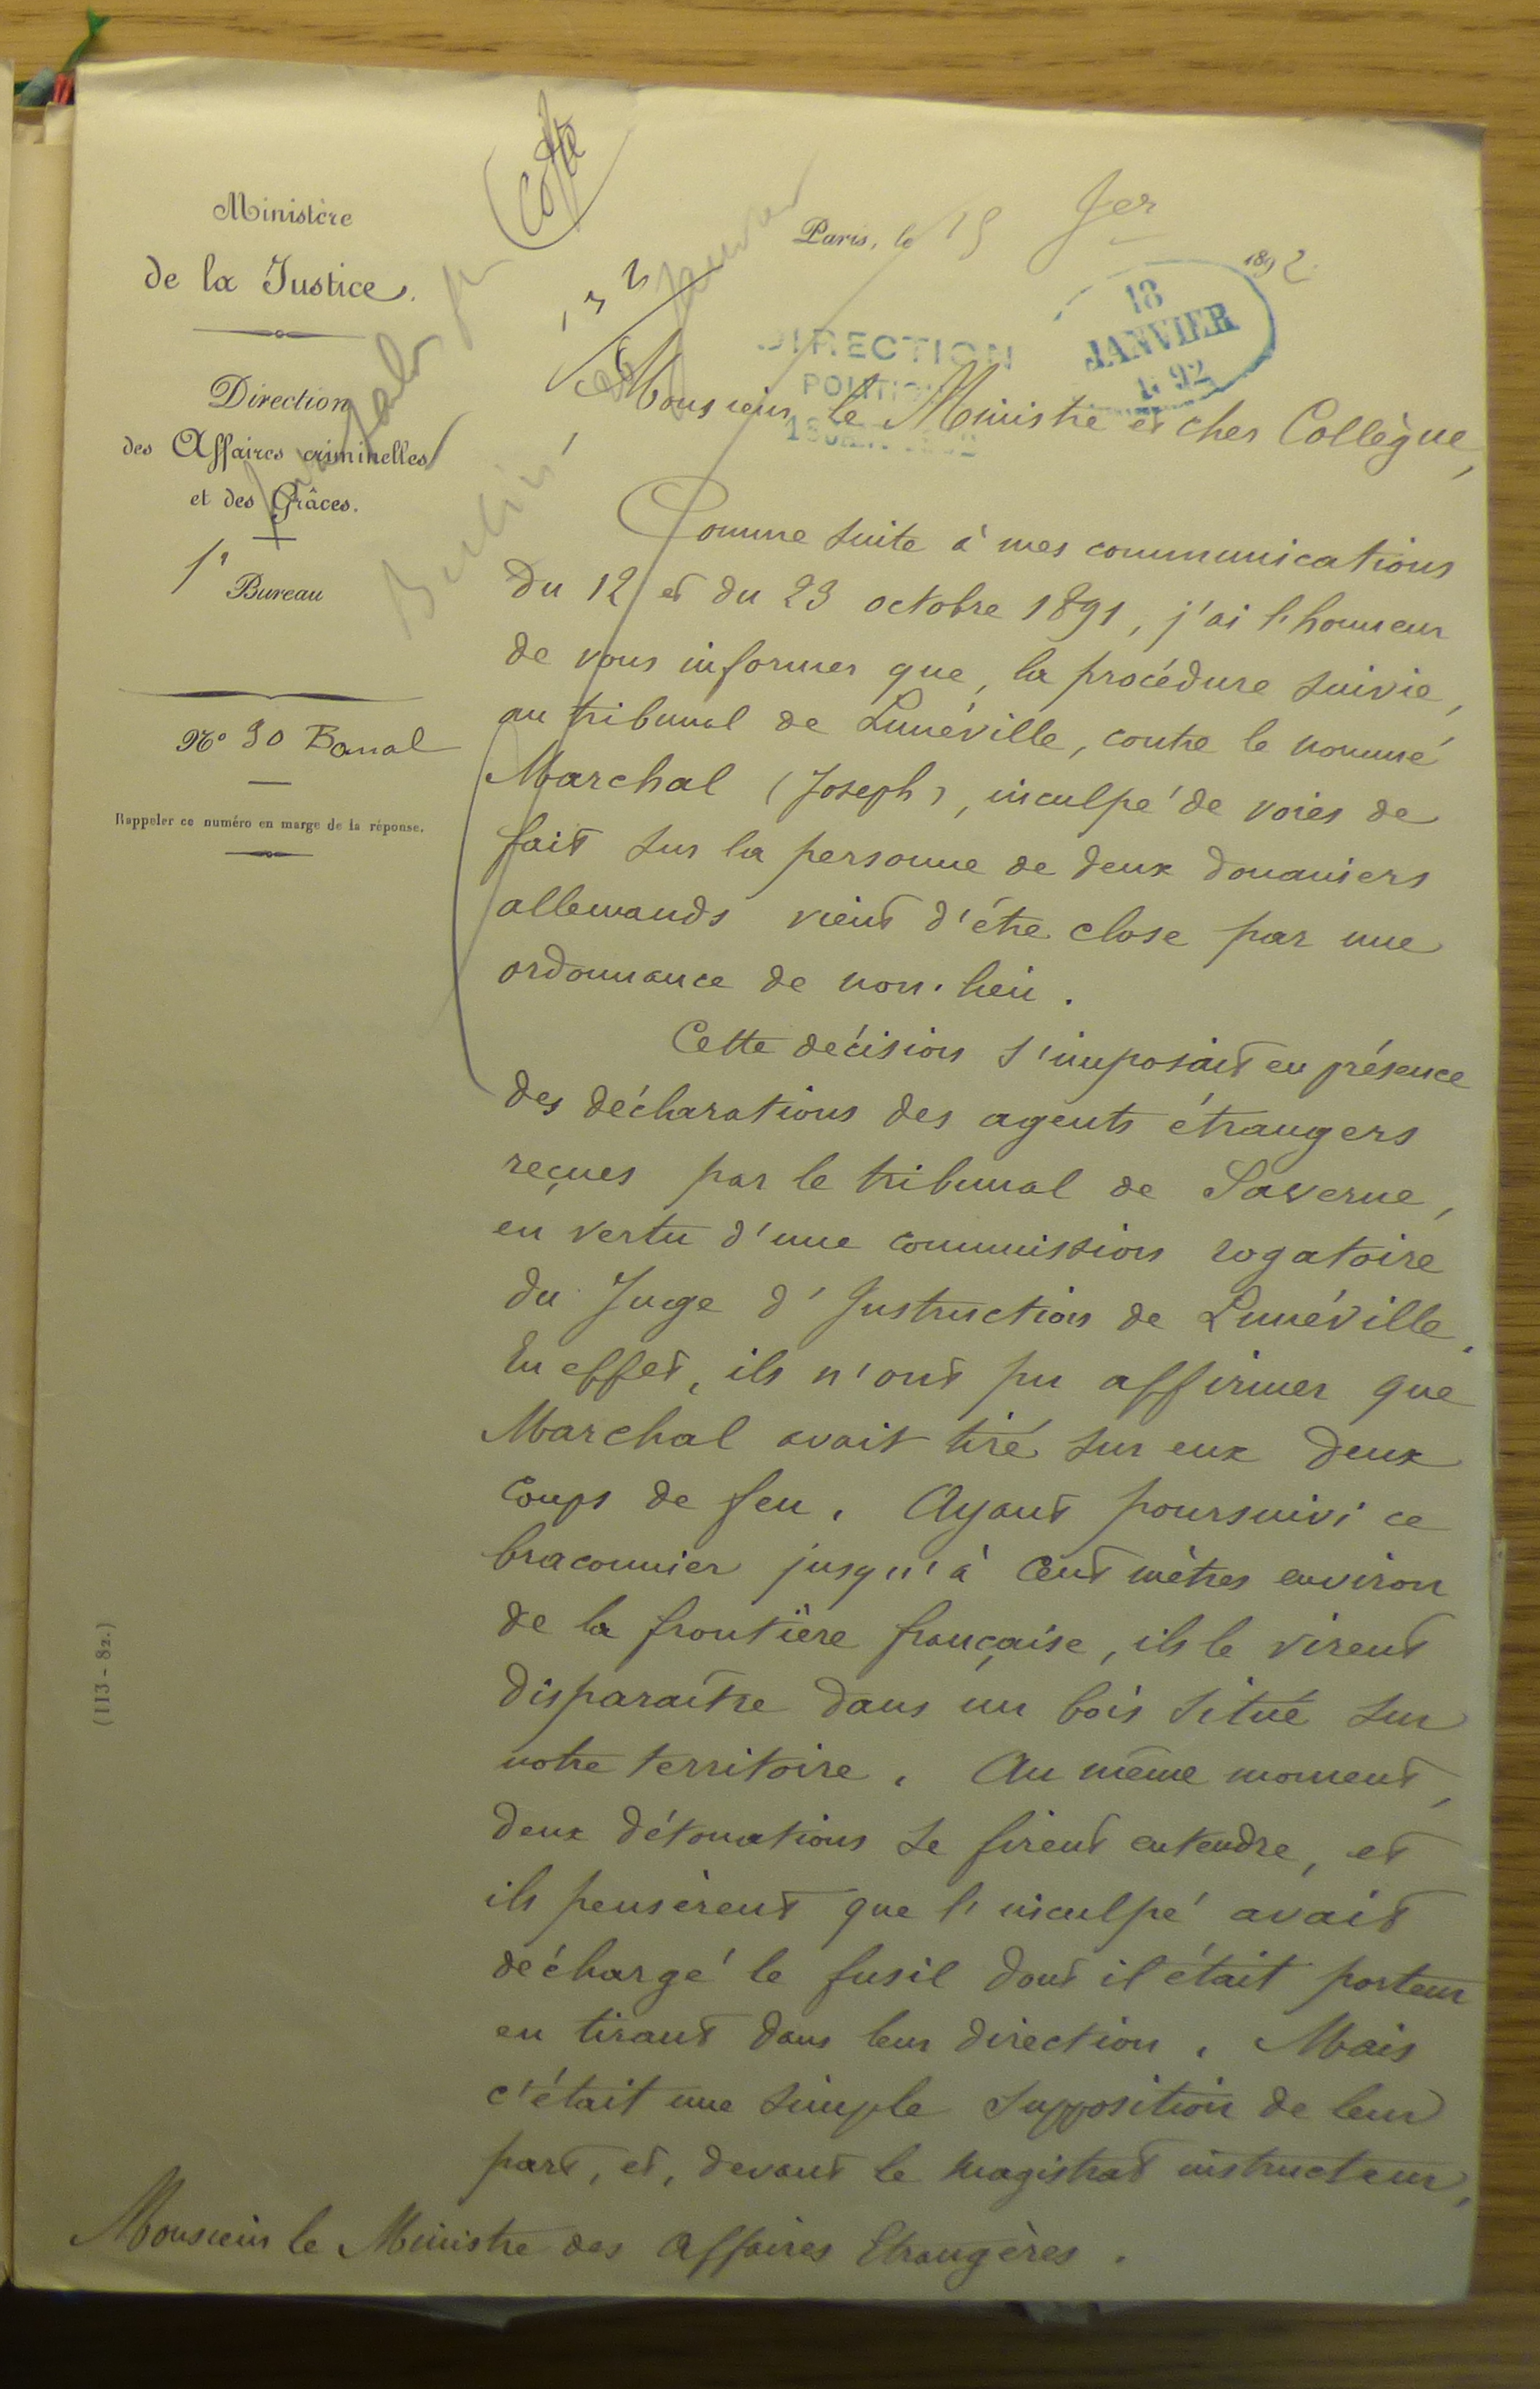 Ministère
de la Justice.
Direction
des Affaires criminelles
et des Grâces.
1er Bureau
No 30 Banal
Rappeler ce numéro en marge de la réponse.
Paris, le 15 Jer 1892
18
JANVIER
1892
DIRECTION
POLITIQUE
Monsieur le Ministre et cher Collègue,
Comme suite à mes communications
du 12 et du 23 octobre 1891, j'ai l'honneur
de vous informer que, la procédure suivie,
au tribunal de Lunéville, contre le nommé
Marchal (Joseph), inculpé de voies de
fait sur la personne de deux douaniers
allemands vient d'être close par une
ordonnance de non-lieu.
Cette décision s'imposait en présence
des déclarations des agents étrangers
reçues par le tribunal de Saverne,
en vertu d'une commission rogatoire
du Juge d'Instruction de Lunéville.
En effet, ils n'ont pu affirmer que
Marchal avait tiré sur eux deux
coups de feu. Ayant poursuivi ce
braconnier jusqu'à cent mètres environ
de la frontière française, ils le virent
disparaître dans un bois situé sur
notre territoire. Au même moment,
deux détonations se firent entendre, et
ils pensèrent que l'inculpé avait
déchargé le fusil dont il était porteur
en tirant dans leur direction. Mais
c'était une simple supposition de leur
part, et, devant le magistrat instructeur,
Monsieur le Ministre des Affaires Etrangères.
(113-82.)